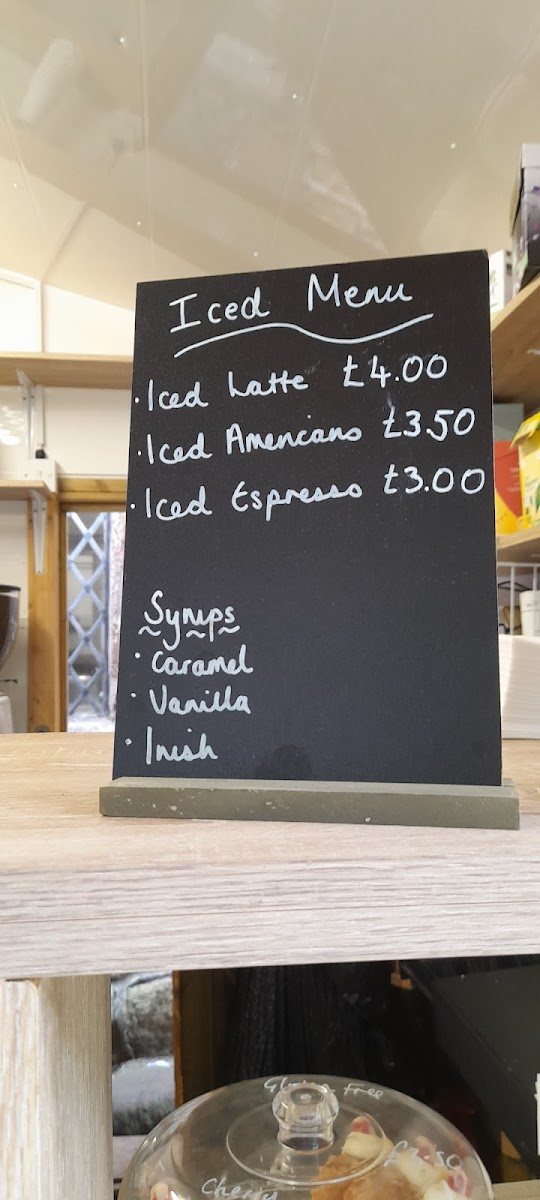 Iced Menu
· Iced Latte £4.00
· Iced Americano £3.50
· Iced Espresso £3.00
Syrups
· Caramel
· Vanilla
· Irish
Free
Cherry